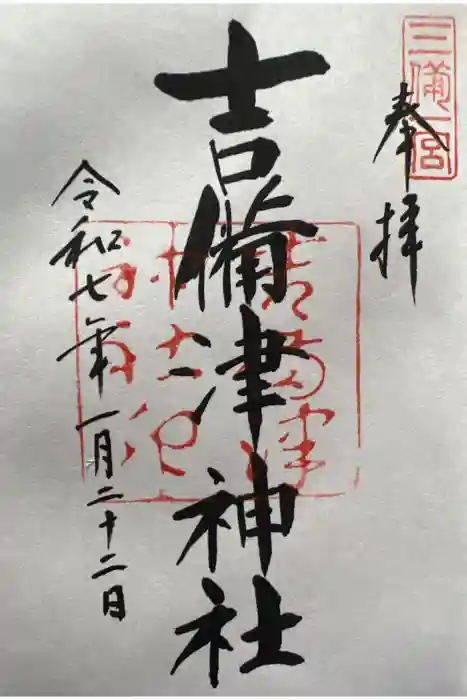 三備一宮
奉拝
吉備津神社
令和七年一月二十二日